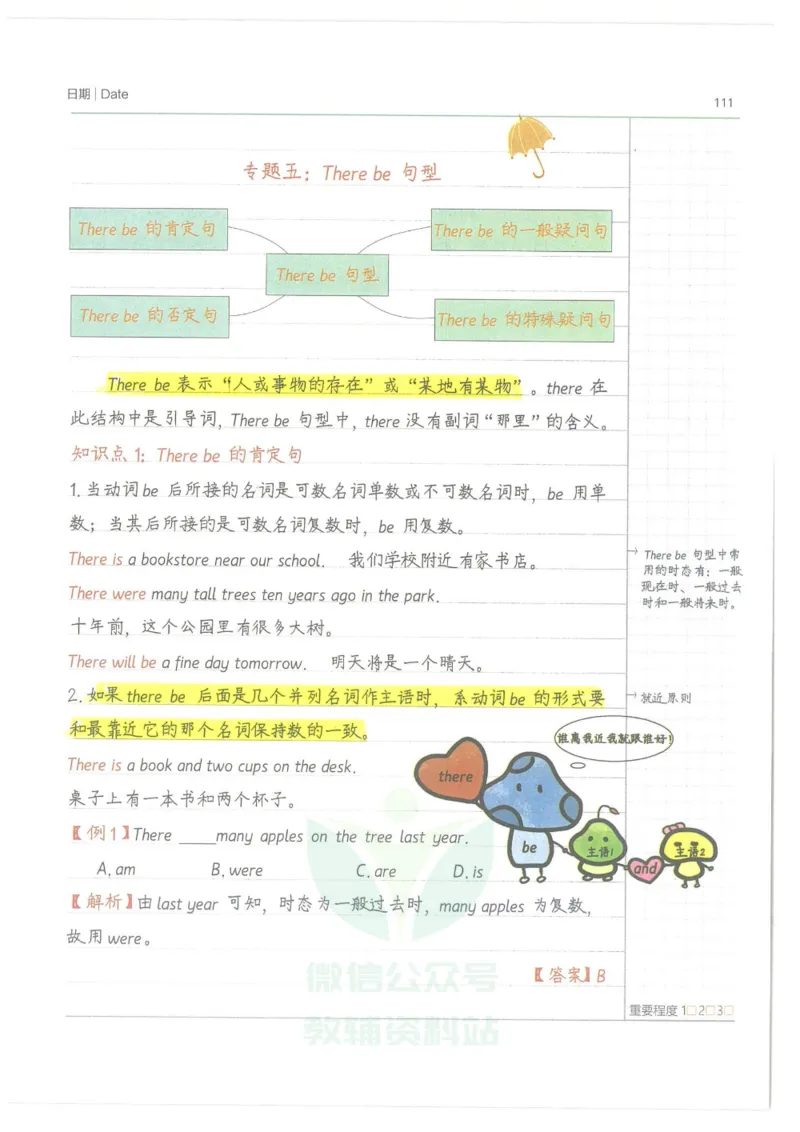 日期 | Date
111
专题五：There be 句型
There be 的肯定句
There be 的一般疑问句
There be 句型
There be 的否定句
There be 的特殊疑问句
There be 表示“人或事物的存在”或“某地有某物”。there 在
此结构中是引导词，There be 句型中，there 没有副词“那里”的含义。
知识点 1：There be 的肯定句
1. 当动词 be 后所接的名词是可数名词单数或不可数名词时，be 用单
数；当其后所接的是可数名词复数时，be 用复数。
There is a bookstore near our school. 我们学校附近有家书店。
→ There be 句型中常
用的时态有：一般
现在时、一般过去
时和一般将来时。
There were many tall trees ten years ago in the park.
十年前，这个公园里有很多大树。
There will be a fine day tomorrow. 明天将是一个晴天。
2. 如果 there be 后面是几个并列名词作主语时，系动词 be 的形式要
→ 就近原则
和最靠近它的那个名词保持数的一致。
谁离我近我就跟谁好！
There is a book and two cups on the desk.
there
桌子上有一本书和两个杯子。
【例1】There ____many apples on the tree last year.
be
主语1
主语2
and
A. am B. were C. are D. is
【解析】由 last year 可知，时态为一般过去时，many apples 为复数，
故用 were。
【答案】B
微信公众号
教辅资料站
重要程度 1□ 2□ 3□